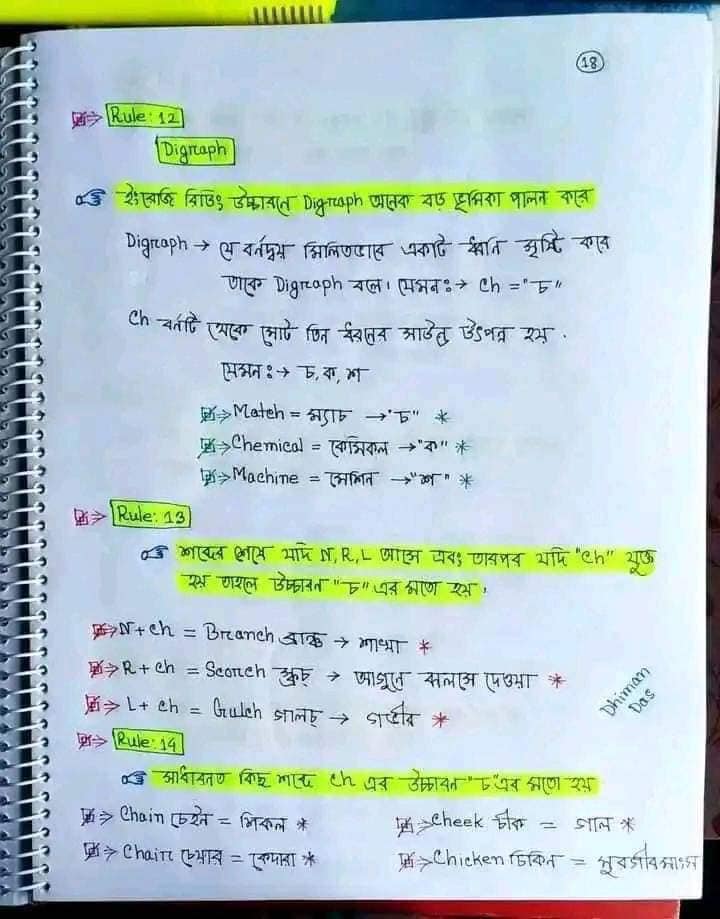 18
Rule: 12
Digraph
ইংরেজি রিডিং উচ্চারনে Digraph অনেক বড় ভূমিকা পালন করে
Digraph → যে বর্নদ্বয় মিলিতভাবে একটি ধ্বনি সৃষ্টি করে
তাকে Digraph বলে। যেমনঃ→ Ch = "চ"
Ch বর্নটি থেকে মোট তিন ধরনের সাউন্ড উৎপন্ন হয়.
যেমনঃ→ চ, ক, শ
⇒ Match = ম্যাচ → "চ" *
⇒ Chemical = কেমিকল → "ক" *
⇒ Machine = মেশিন → "শ" *
Rule: 13
শব্দের শেষে যদি N, R, L আসে এবং তারপর যদি "Ch" যুক্ত
হয় তাহলে উচ্চারন "চ" এর মতো হয়.
⇒ N + ch = Branch ব্রাঞ্চ → শাখা *
⇒ R + ch = Scorch স্ক্রচ্ → আগুনে ঝলসে দেওয়া *
⇒ L + ch = Gulch গালচ্ → গভীর *
Dhiman
Das
Rule: 14
সাধারনত কিছু শব্দে ch এর উচ্চারন "চ" এর মতো হয়
⇒ Chain চেইন = শিকল *
⇒ Cheek চীক = গাল *
⇒ Chair চেয়ার = কেদারা *
⇒ Chicken চিকিন = মুরগীর মাংস